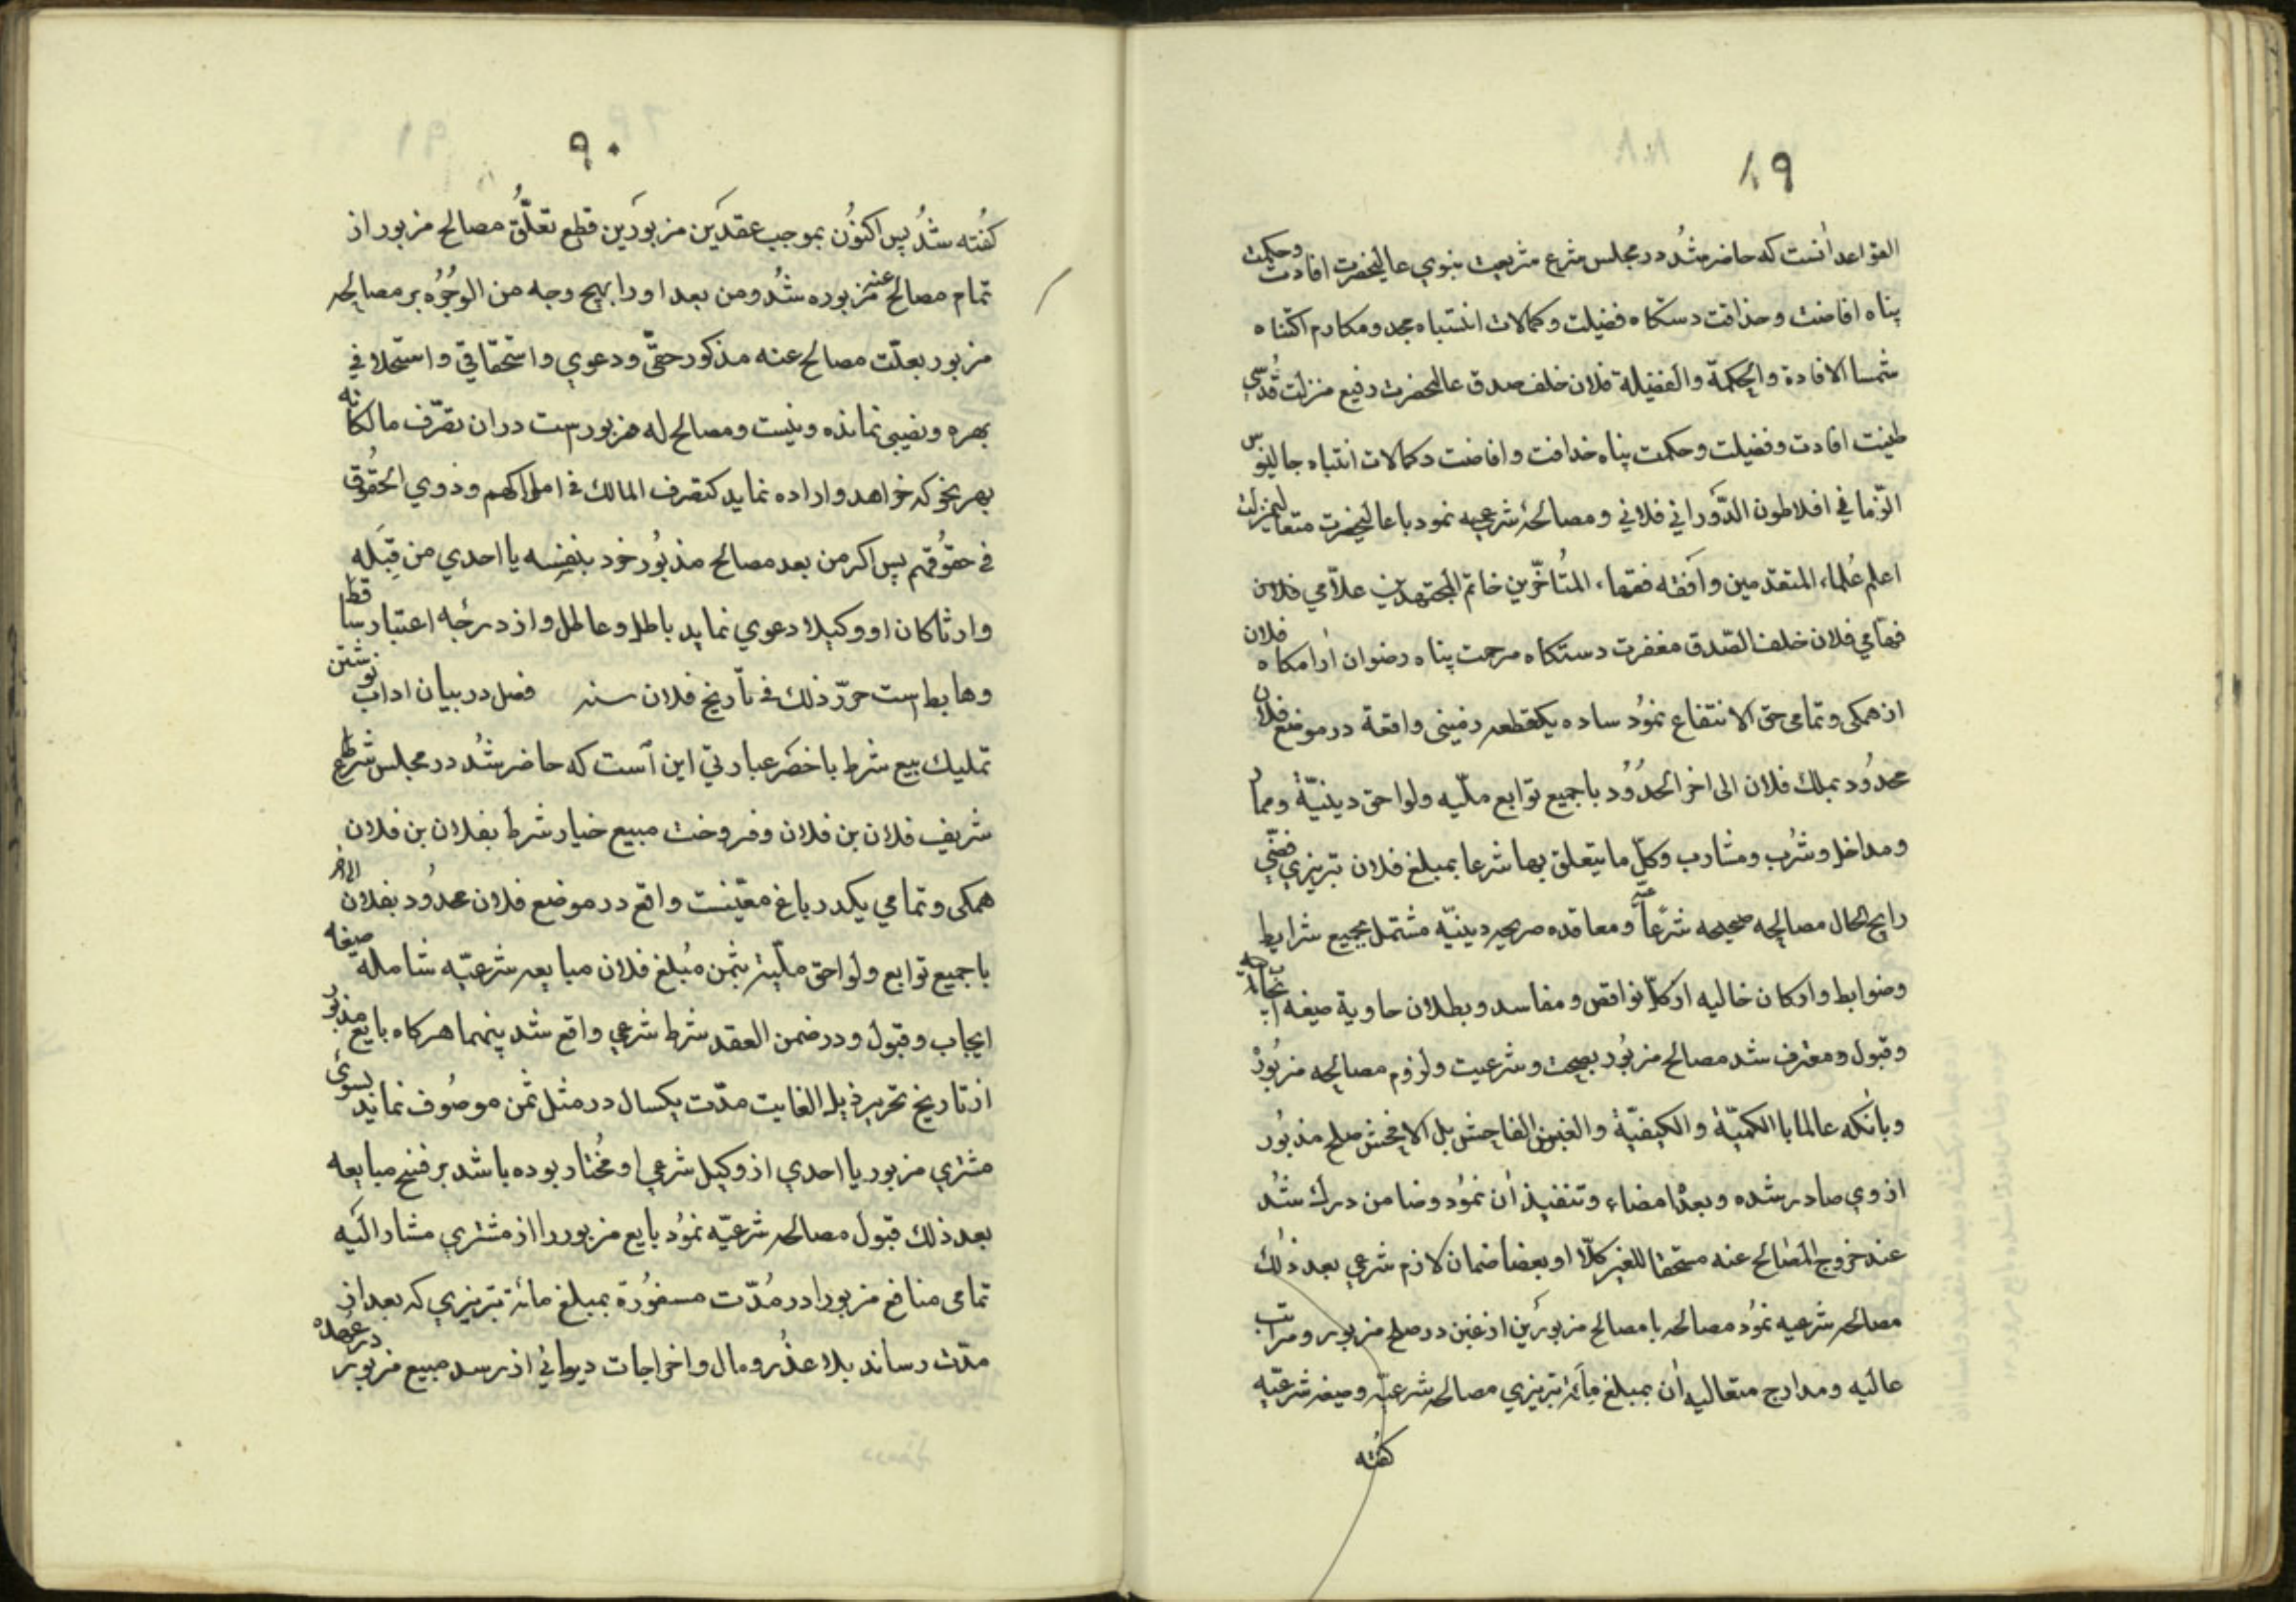 ٨٩
القواعد آنست که حاضر شُد در مجلس شرع شریعت نبوي عالیحضرت افادت وحکمت
پناه افاضت وحذاقت دستکاه فضیلت وکمالات انتساباه مجد ومکارم اکتناه
شمسا الافادة والحکمة والفضیلة فلان خلف صدق عالیحضرت رفیع منزلت قُدسي
طینت افادت وفضیلت وحکمت پناه خداقت وافاضت دکمالات انتباه جالینوس
الزماني افلاطون الدَّوراني فلاني ومصالحۀ شرعیه نمود باعالیحضرت متعالیمنزلت
اعلم عُلماء المتقدمین وافقه فقهاء المتُاخّرین خاتم المجتهدین علّامي فلان
فهّامي فلان خلف الصّدق مغفرت دستکاه مرحمت پناه رضوان ارامکاه فلان
از همکی وتمامی حق الانتفاع نمُود ساده یکقطعه زمینی واقعة در موضع فلان
محدُود بملك فلان الی اخر الحدُوُد باجمیع توابع ملّیه ولواحق دینیّة وممار
ومداخل وشُرب ومشارب وکلّ ما یتعلق بها شرعا بمبلغ فلان تبریزي فضّي
رایج الحال مصالحه صحیحه شرعیّه ومعاقده صریحه دینیّه مشتمل بجمیع شرایط
وضوابط وارکان خالیه از کلّ نواقص ومفاسد وبطلان حاویة صیغه ایجابیه
وقبول ومعترف شد مصالح مزبُور بصحت وشرعیت ولزوم مصالحه مزبُورْ
وبانکه عالما باالکمیّة والکیفیّة والغبن الفاحش بل الافحش صلح مذبُور
از وي صادر شده وبعدْ امضاء وتنفیذ اُن نمُود وضامن درك شُد
عند خروج المصالح عنه مستحقا للغیر کلّا او بعضا ضمان لازم شرعي بعد ذلك
مصالحه شرعیه نمُود مصالحه با مصالح مزبورَین از غبن در صلح مزبور ومراتب
عالیه ومدارج متعالیه اُن بمبلغ مأۀ تبریزي مصالحه شرعیّه وصیغه شرعیّه
کفته
٩٠
کفُته شدُ پس اکنوُن بموجب عقدَین مزبورَین قطع تعلّق مصالح مزبور از
تمام مصالح عنه مزبوره شُد ومن بعد اورا بهیچ وجه من الوجُوُه بر مصالح له
مزبور بعلّت مصالح عنه مذکور حقّي ودعوي واستحقاقي واستحلافي
بهره ونصیبی نمانده ونیست ومصالح له مزبور است دران تصرّف مالکانه
بهر نحو که خواهد واراده نماید کتصرف المالك فی املاکهم وذوي الحقُوُق
فی حقوُقهم پس اکر من بعد مصالح مذبُور خود بنفسه یا احدي من قِبَله
وارثا کان او وکیلا دعوي نماید باطل وعاطل واز درجُه اعتبار ساقط
وهابط است حرّر ذلك فی تاریخ فلان سنه فصل در بیان اداب نوشتن
تملیك بیع شرط باخصَر عبارتي این اَست که حاضر شُد در مجلس شرع
شریف فلان بن فلان وفروخت مبیع خیار شرط بفلان بن فلان
همکی وتمامي یکدر باغ معیّنست واقع در موضع فلان محدُود بفلان الی اخر
باجمیع توابع ولواحق ملّیه بثمن مُبلغ فلان مبایعه شرعیّه شامله صیغه
ایجاب وقبول ودر ضمن العقد شرط شرعي واقع شد بینهما هر کاه بایع مذبور
از تاریخ تحریر ذیل الغایت مدّت یکسال در مثل ثمن موصُوف نماید بسوئ
مشتري مزبور یا احدي از وکیل شرعي او مُختار بوده باشد بر فسخ مبایعه
بعد ذلك قبول مصالحه شرعیّه نمُود بایع مزبور را از مشتري مشار الَیه
تمامی منافع مزبور را در مُدّت مسفوُرة بمبلغ مائۀ تبریزي که بعد از
مدّت رساند بلا عذُر ومال واخراجات دیواني از رسد مبیع مزبور در عُهده